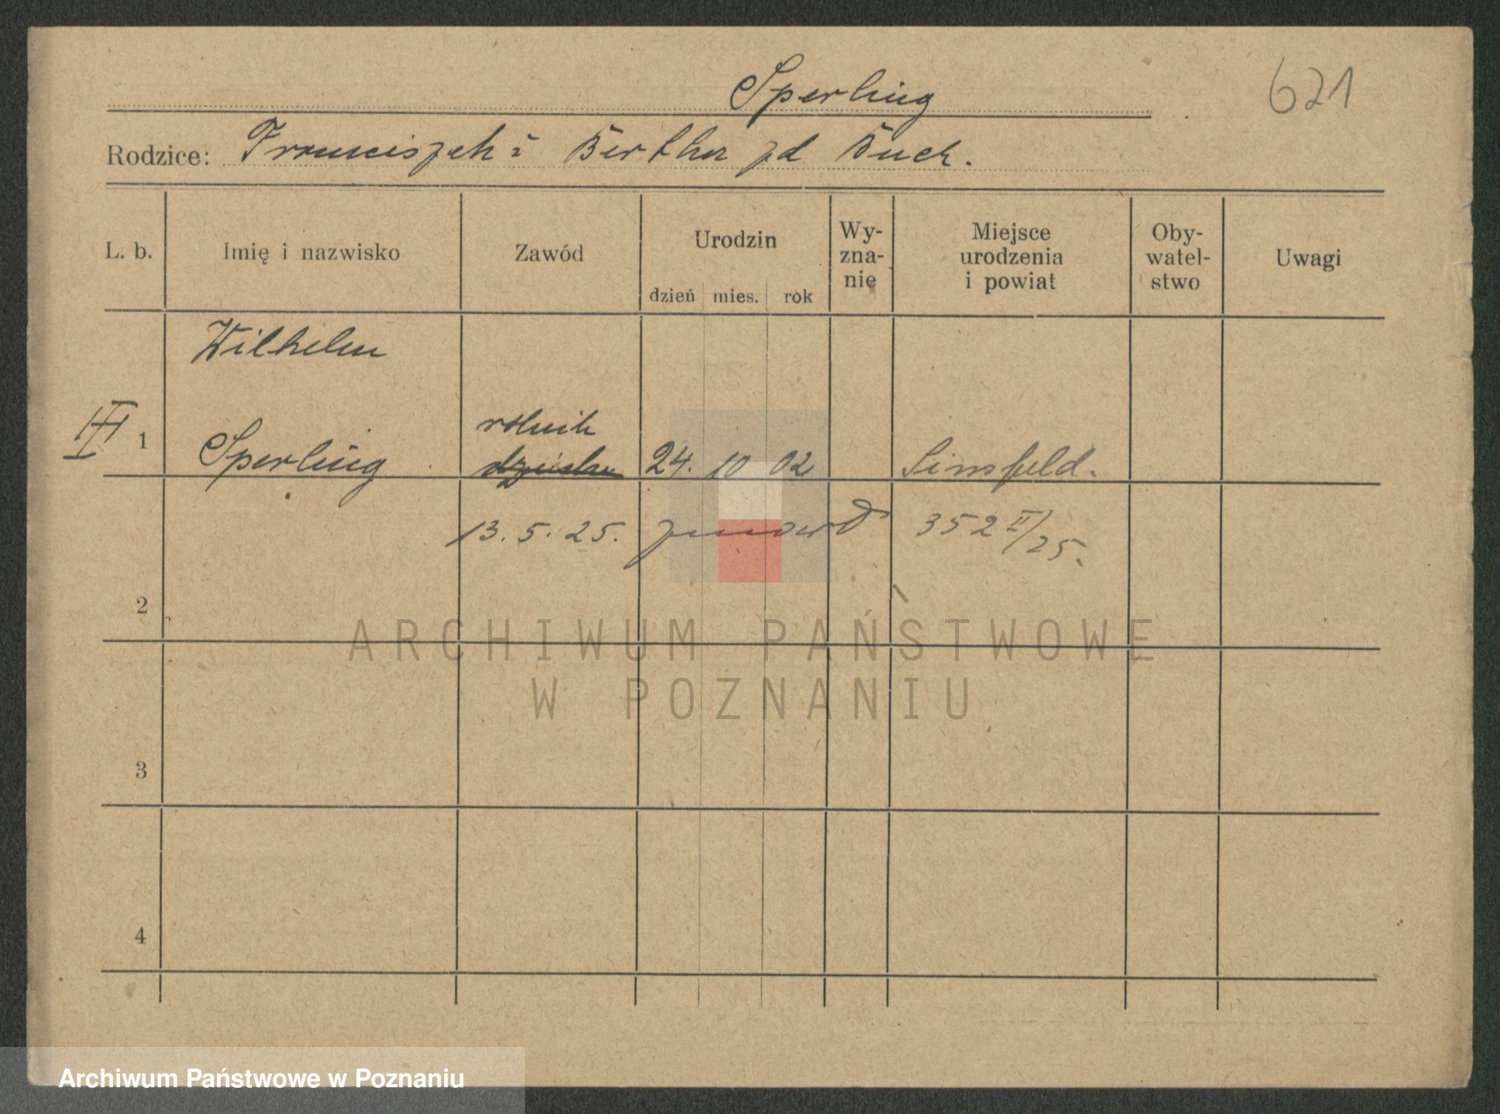 Sperling
621
Rodzice: Franciszek i Bertha zd Buch.
L. b. Imię i nazwisko Zawód Urodzin dzień mies. rok Wy-zna-nie Miejsce urodzenia i powiat Oby-watel-stwo Uwagi
Wilhelm
III 1 Sperling rolnik 24. 10 02 Sinsfeld.
13. 5. 25. zmarł 352 II/25.
2
ARCHIWUM PAŃSTWOWE
W POZNANIU
3
4
Archiwum Państwowe w Poznaniu